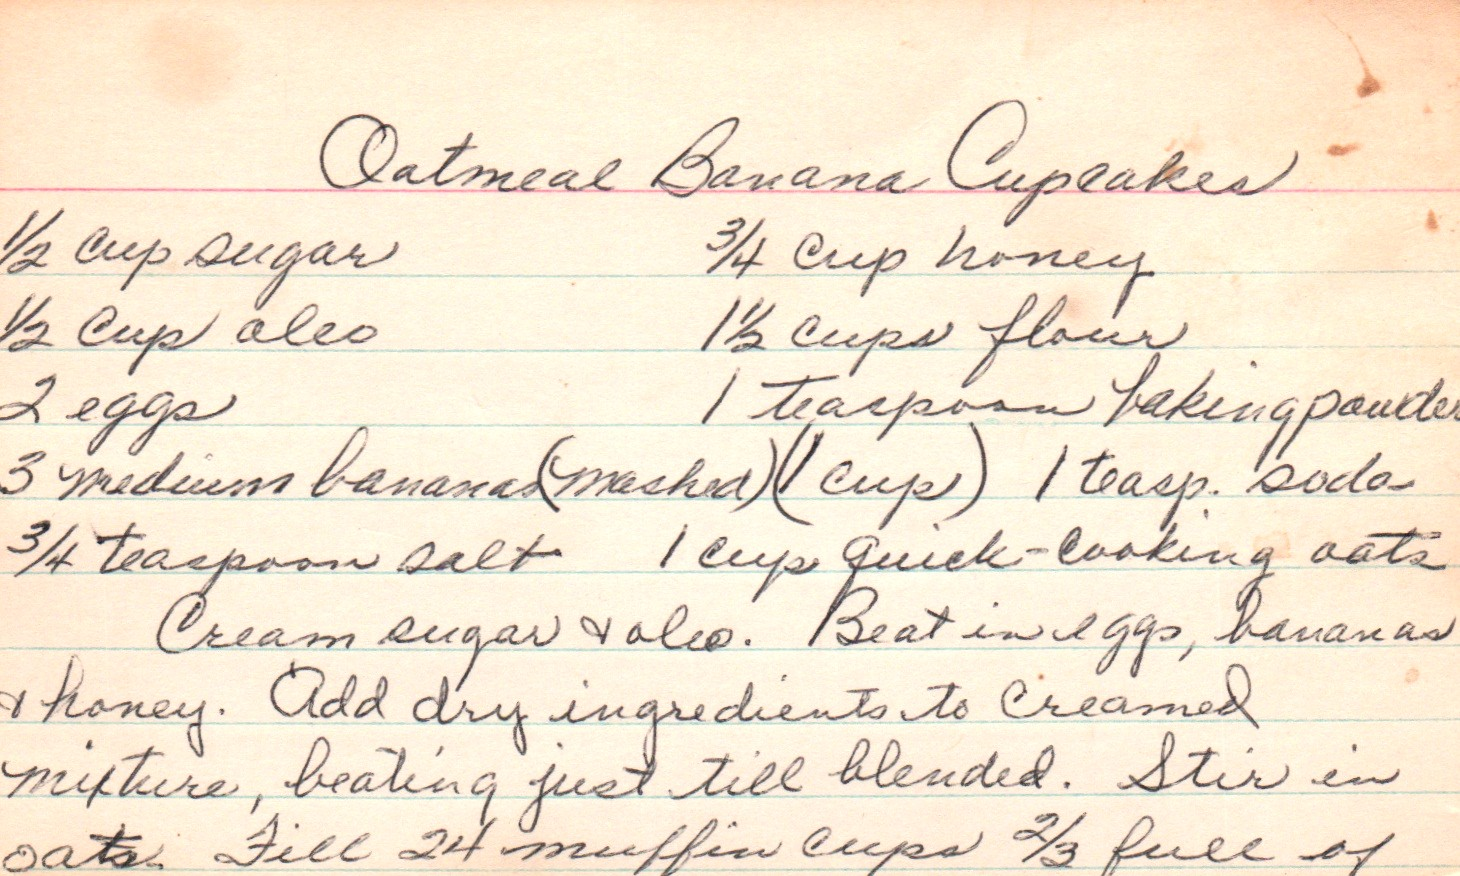 Oatmeal Banana Cupcakes
1/2 cup sugar 3/4 cup honey
1/2 cup oleo 1 1/2 cups flour
2 eggs 1 teaspoon baking powder
3 medium bananas (mashed) (1 cup) 1 teasp. soda
3/4 teaspoon salt 1 cup quick-cooking oats
Cream sugar & oleo. Beat in eggs, bananas
& honey. Add dry ingredients to creamed
mixture, beating just till blended. Stir in
oats. Fill 24 muffin cups 2/3 full of